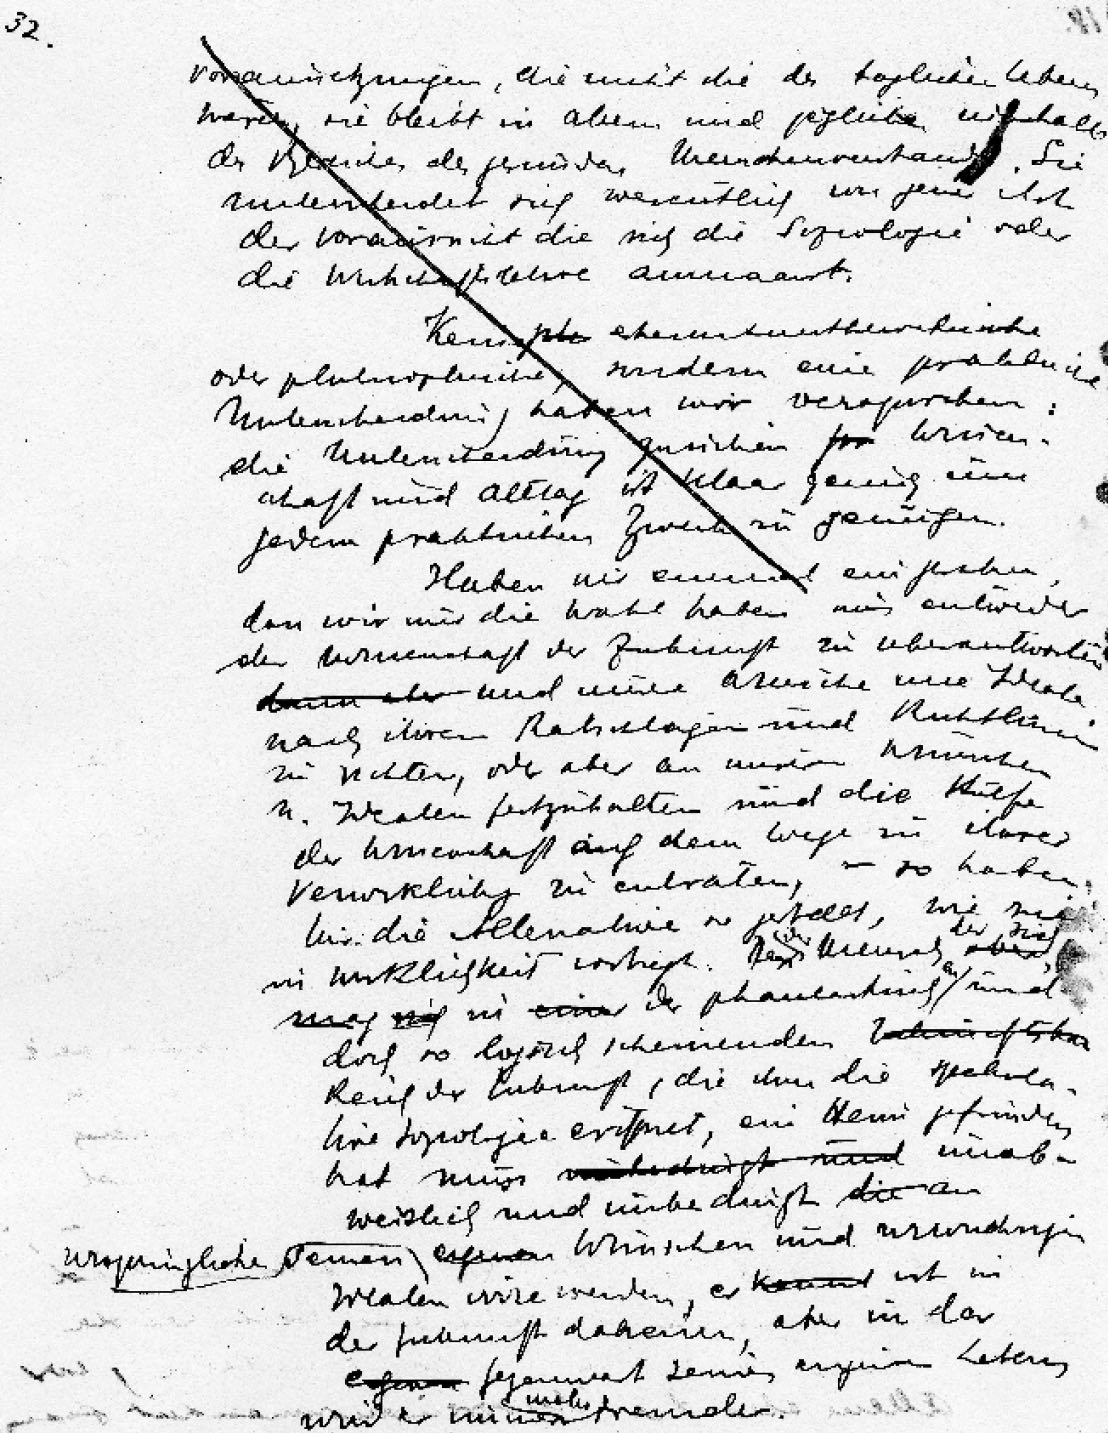 32.
Voraussetzungen, die nicht die des täglichen Lebens
wären, sie bleibt in allem und jeglichem innerhalb
des Bereiches des gesunden Menschenverstandes. Sie
unterscheidet sich wesentlich von jener Art
der Voraussicht die sich die Soziologie oder
die Wirtschaftslehre anmaasst.
Keine erkenntnistheoretische
oder philosophische, sondern eine praktische
Unterscheidung haben wir versprochen:
die Unterscheidung zwischen Wissen-
schaft und Alltag ist klaar genug um
jedem praktischen Zweck zu genügen.
Haben wir einmal eingesehen,
dass wir nur die Wahl haben uns entweder
der Wissenschaft der Zukunft zu überantworten
dann aber und unsere Wünsche und Ideale
nach ihren Ratschlägen und Richtlinien
zu richten, oder aber an unseren Wünschen
u. Idealen festzuhalten und die Hülfe
der Wissenschaft auf dem Wege zu ihrer
Verwirklichg zu entraten, – so haben
wir die Alternative so gestellt, wie sie
in Wirklichkeit vorliegt. Der Mensch, der sich
mag sich in einer der phantastischen und
doch so logisch scheinenden
Reich der Zukunft, die ihm die spekula-
tive Soziologie eröffnet, ein Heim gefunden
hat muss unbedingt und unab-
weislich und unbedingt die an
ursprünglichen seinen eigenen Wünschen und
Idealen irre werden, er kommt ist in
der Zukunft daheim, aber in der
eigenen Gegenwart seines eigenen Lebens
wird er immer mehr Fremder.